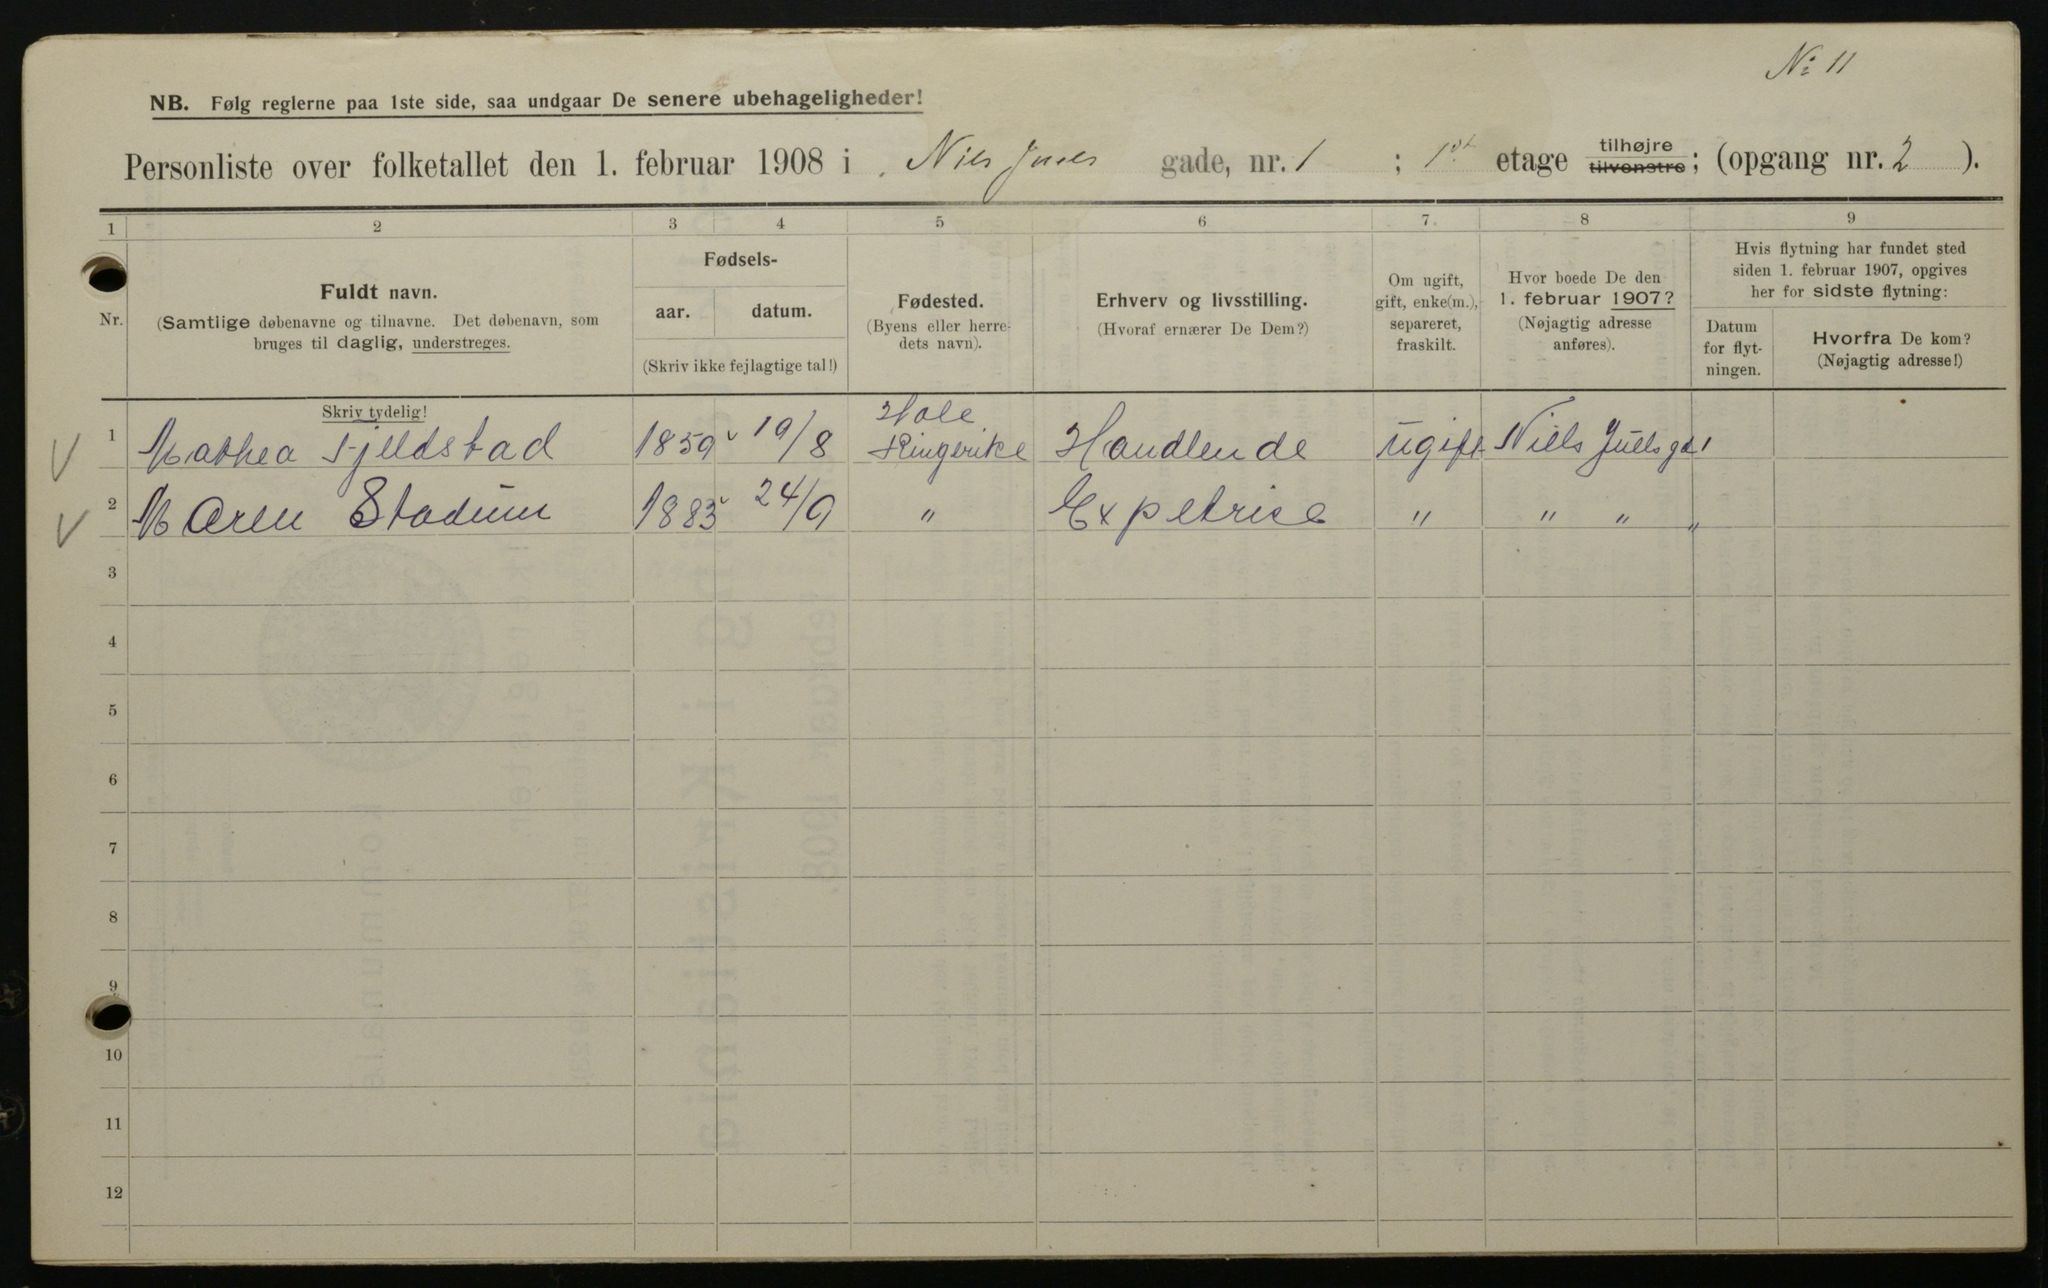 No 11
NB. Følg reglerne paa 1ste side, saa undgaar De senere ubehageligheder!
Personliste over folketallet den 1. februar 1908 i Niels Juels gade, nr. 1 ; 1st etage tilhøjre tilvenstre; (opgang nr. 2 ).
1 2 3 4 5 6 7 8 9
Nr.
Fuldt navn.
(Samtlige døbenavne og tilnavne. Det døbenavn, som
bruges til daglig, understreges.
Fødsels-
aar. datum.
(Skriv ikke fejlagtige tal!)
Fødested.
(Byens eller herre-
dets navn).
Erhverv og livsstilling.
(Hvoraf ernærer De Dem?)
Om ugift,
gift, enke(m.),
separeret,
fraskilt.
Hvor boede De den
1. februar 1907?
(Nøjagtig adresse
anføres).
Hvis flytning har fundet sted
siden 1. februar 1907, opgives
her for sidste flytning:
Datum
for flyt-
ningen.
Hvorfra De kom?
(Nøjagtig adresse!)
Skriv tydelig!
1 Mathea Fjeldstad 1859 19/8 Hole Ringerike Handlende ugift Niels Juels gd 1
2 Maren Stadum 1883 24/9 " Expetrise " " " "
3
4
5
6
7
8
9
10
11
12